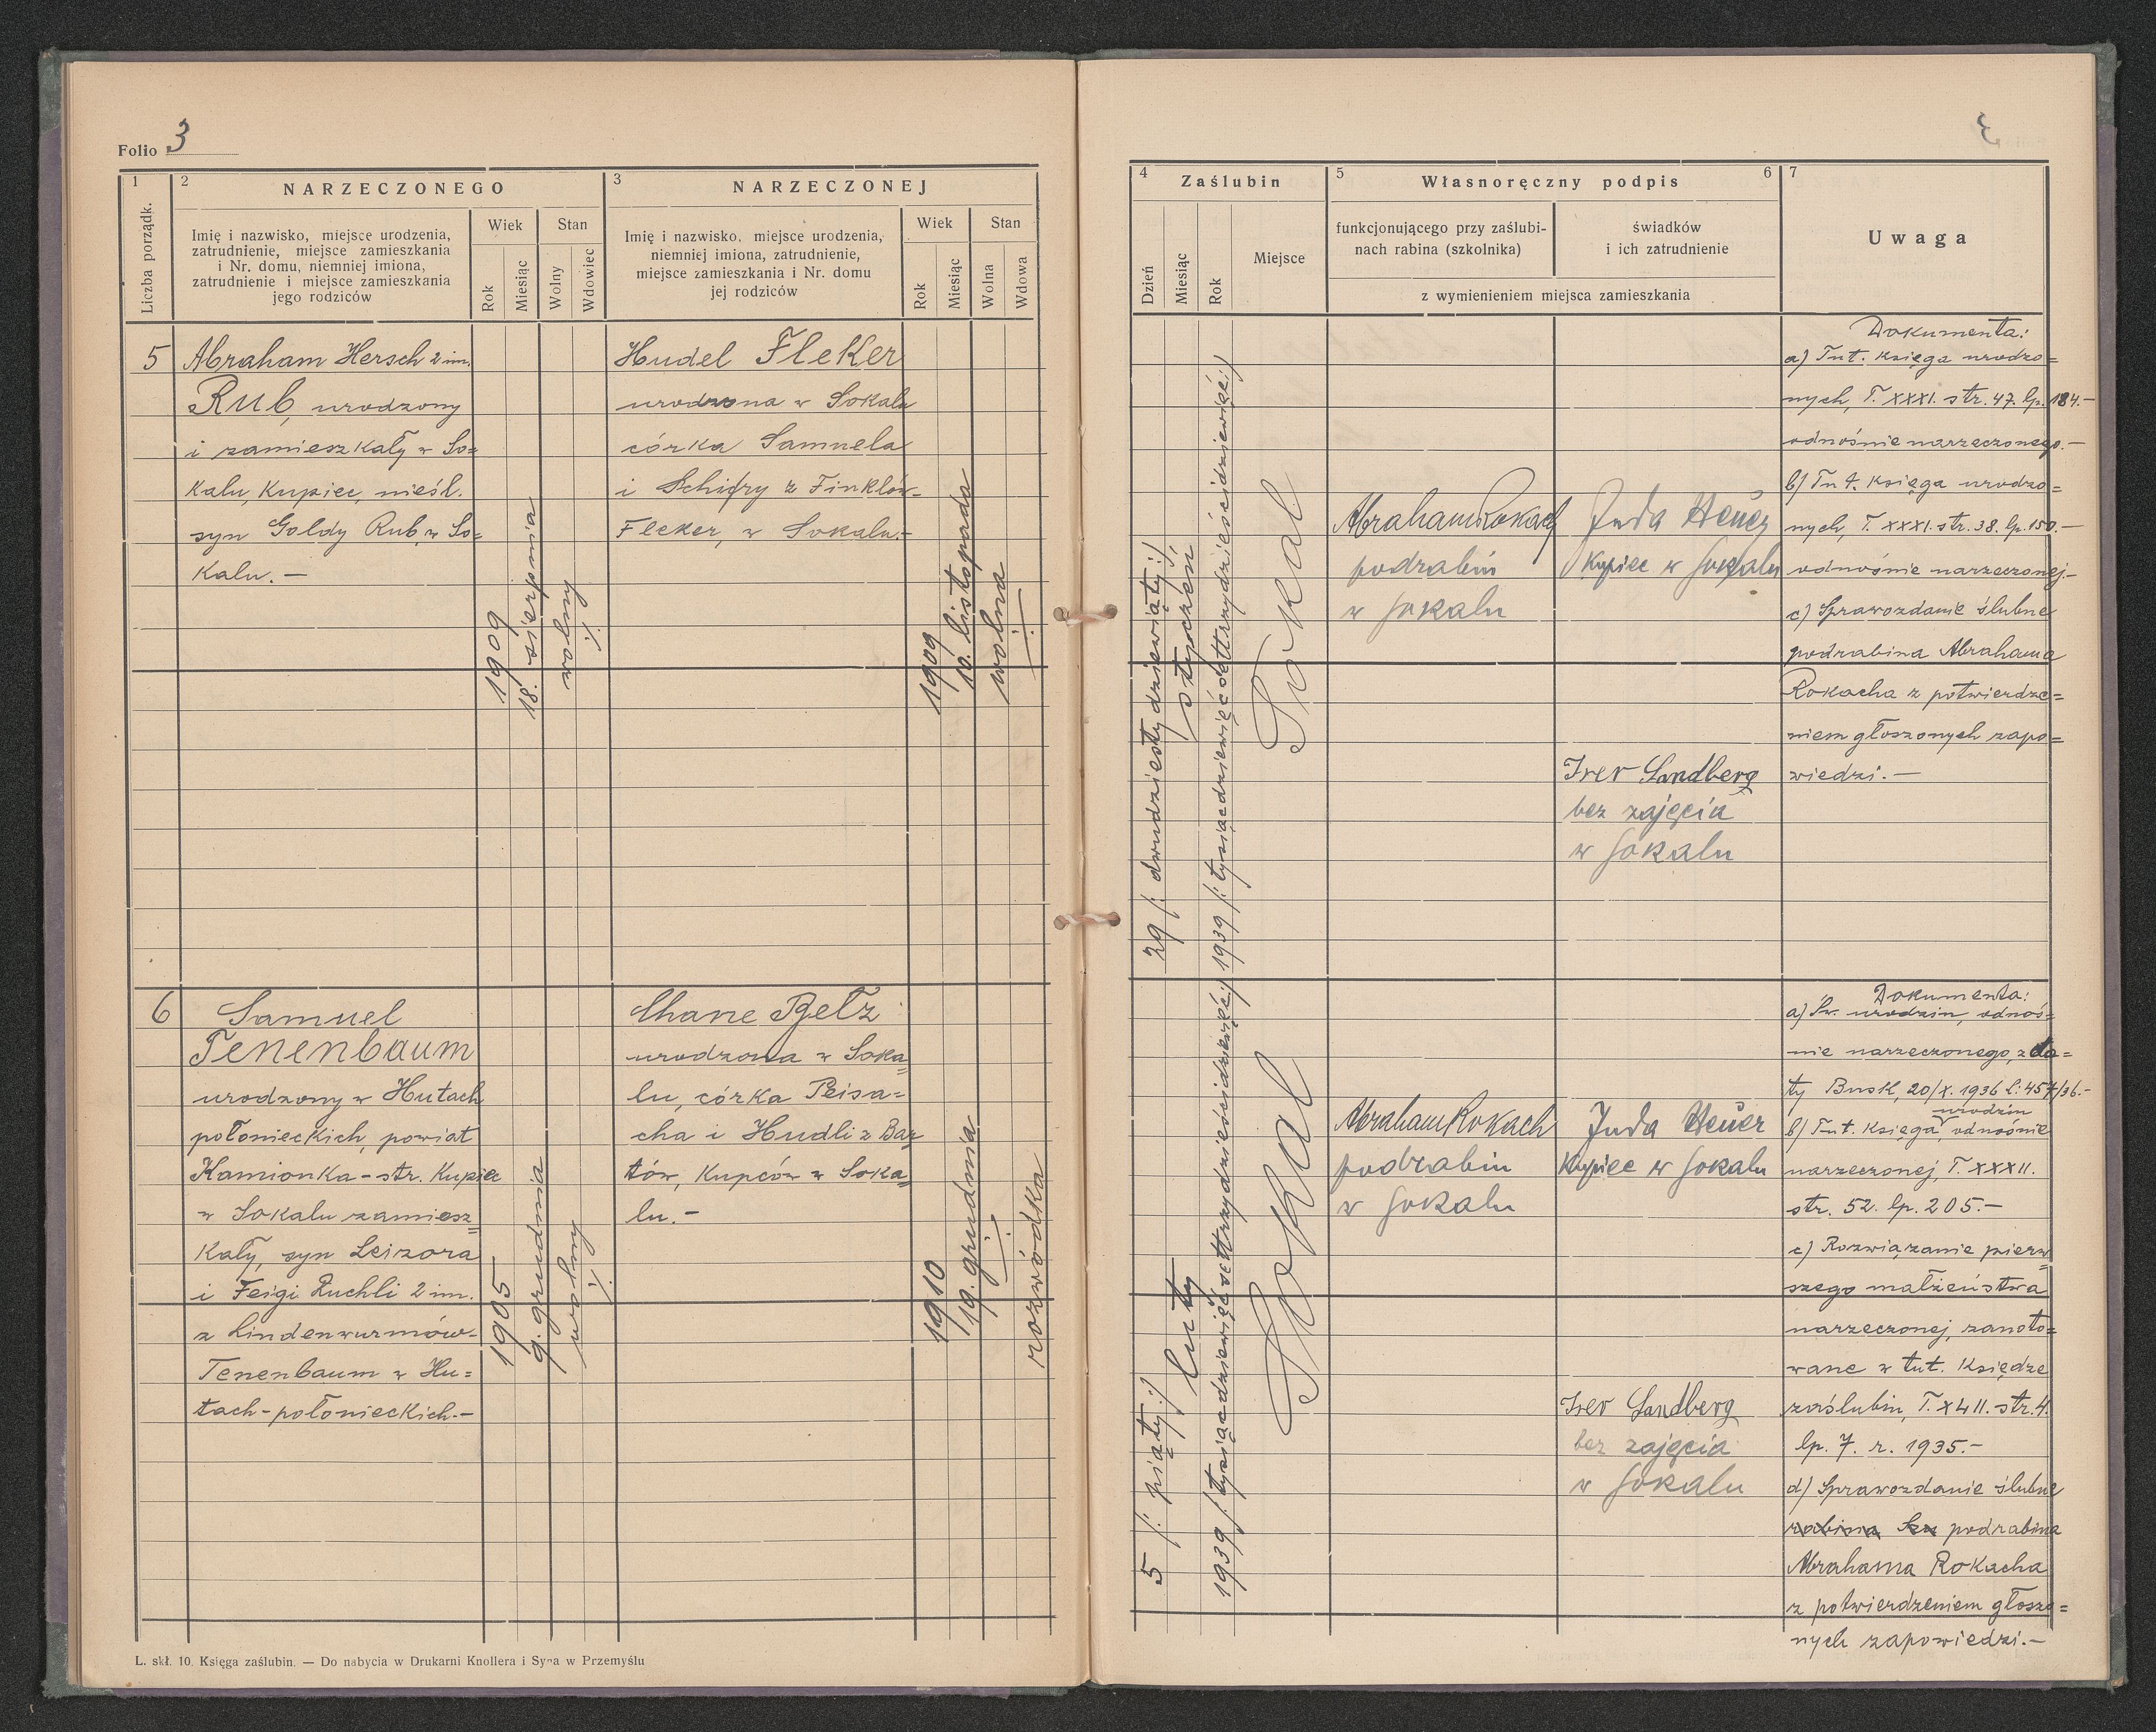 Folio 3
3
1
2
NARZECZONEGO
3
NARZECZONEJ
Liczba porządk.
Imię i nazwisko, miejsce urodzenia,
zatrudnienie, miejsce zamieszkania
i Nr. domu, niemniej imiona,
zatrudnienie i miejsce zamieszkania
jego rodziców
Wiek
Stan
Rok
Miesiąc
Wolny
Wdowiec
Imię i nazwisko, miejsce urodzenia,
niemniej imiona, zatrudnienie,
miejsce zamieszkania i Nr. domu
jej rodziców
Wiek
Stan
Rok
Miesiąc
Wolna
Wdowa
4
Zaślubin
5
Własnoręczny podpis
6
7
Dzień
Miesiąc
Rok
Miejsce
funkcjonującego przy zaślubi-
nach rabina (szkolnika)
świadków
i ich zatrudnienie
z wymienieniem miejsca zamieszkania
Uwaga
5
Abraham Hersch 2 im.
Rub, urodzony
i zamieszkały w So=
kalu, kupiec, nieśl.
syn Goldy Rub, w So=
kalu.—
1909
18. sierpnia
wolny
·/.
Hudel Fleker
urodzona w Sokalu
córka Samuela
i Schifry z Finklów-
Fleker, w Sokalu.-
1909
10. listopada
wolna
29 /: dwudziesty dziewiąty :/
styczeń
1939 /: tysiąc dziewięćset trzydzieści dziewięć :/
Sokal
Abraham Rokach
podrabin
w Sokalu
Juda Heuer
kupiec w Sokalu
Iser Landberg
bez zajęcia
w Sokalu
Dokumenta:
a) Tut. księga urodzo=
nych, T. XXXI. str. 47. lp. 184.—
odnośnie narzeczonego.—
b) Tut. księga urodzo=
nych, T. XXXI. str. 38. lp. 150.—
odnośnie narzeczonej.—
c) Sprawozdanie ślubne
podrabina Abrahama
Rokacha z potwierdze=
niem głoszonych zapo=
wiedzi.—
6
Samuel
Tenenbaum
urodzony w Hutach
połonieckich, powiat
Kamionka-str. kupiec
w Sokalu zamiesz=
kały, syn Leizora
i Feigi Ruchli 2 im.
z Lindenwurmów-
Tenenbaum w Hu=
tach-połonieckich.-
1905
9. grudnia
wolny
·/.
Chane Bełz
urodzona w Soka
lu, córka Peisa=
cha i Hudli z Bar
tów, kupców w Soka=
lu.-
1910
19. grudnia
rozwódka
5 /: piąty :/
luty
1939 /: tysiąc dziewięćset trzydzieści dziewięć :/
Sokal
Abraham Rokach
podrabin
w Sokalu
Juda Heuer
kupiec w Sokalu
Iser Landberg
bez zajęcia
w Sokalu
Dokumenta:
a) Św. urodzin, odnoś=
nie narzeczonego, z da=
ty Busk, 20/X. 1936 L: 457/36.-
urodzin
b) Tut. księga, odnośnie
narzeczonej, T. XXXII.
str. 52. lp. 205.—
c) Rozwiązanie pierw=
szego małżeństwa
narzeczonej, zanoto=
wane w tut. księdze
zaślubin, T. XLII. str. 4.
lp. 7. r. 1935.—
d) Sprawozdanie ślubne
rabina podrabina
Abrahama Rokacha
z potwierdzeniem głoszo=
nych zapowiedzi.—
L. skł. 10. Księga zaślubin. — Do nabycia w Drukarni Knollera i Syna w Przemyślu